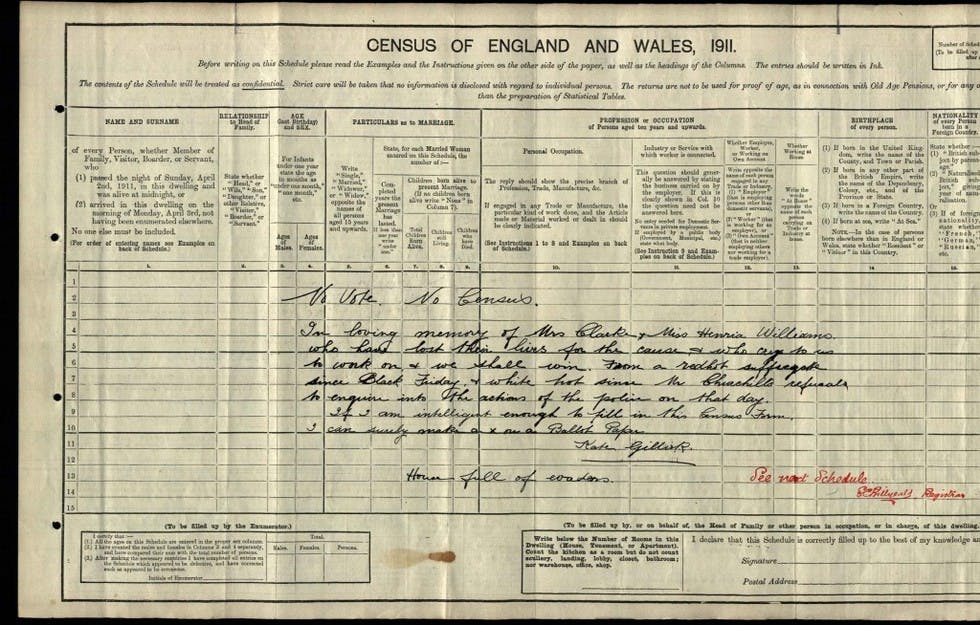 CENSUS OF ENGLAND AND WALES, 1911.
Number of Sched
(To be filled up
after
Before writing on this Schedule please read the Examples and the Instructions given on the other side of the paper, as well as the headings of the Columns. The entries should be written in Ink.
The contents of the Schedule will be treated as confidential. Strict care will be taken that no information is disclosed with regard to individual persons. The returns are not to be used for proof of age, as in connection with Old Age Pensions, or for any o
than the preparation of Statistical Tables.
NAME AND SURNAME
of every Person, whether Member of
Family, Visitor, Boarder, or Servant,
who
(1) passed the night of Sunday, April
2nd, 1911, in this dwelling and
was alive at midnight, or
(2) arrived in this dwelling on the
morning of Monday, April 3rd, not
having been enumerated elsewhere.
No one else must be included.
(For order of entering names see Examples on
back of Schedule.)
RELATIONSHIP
to Head of
Family.
State whether
"Head," or
"Wife," "Son,"
"Daughter," or
other Relative,
"Visitor,"
"Boarder," or
"Servant."
AGE
(last Birthday)
and SEX.
For Infants
under one year
state the age
in months as
"under one month,"
"one month,"
etc.
Ages
of
Males.
Ages
of
Females.
PARTICULARS as to MARRIAGE.
Write
"Single,"
"Married,"
"Widower,"
or "Widow,"
opposite the
names of
all persons
aged 15 years
and upwards.
State, for each Married Woman
entered on this Schedule, the
number of:—
Completed
years the
present
Marriage
has lasted.
If less than
one year
write
"under
one."
Children born alive to
present Marriage.
(If no children born
alive write "None" in
Column 7).
Total
Children
Born
Alive.
Children
still
Living.
Children
who
have
Died.
PROFESSION or OCCUPATION
of Persons aged ten years and upwards.
Personal Occupation.
The reply should show the precise branch of
Profession, Trade, Manufacture, &c.
If engaged in any Trade or Manufacture, the
particular kind of work done, and the Article
made or Material worked or dealt in should
be clearly indicated.
(See Instructions 1 to 8 and Examples on back
of Schedule.)
Industry or Service with
which worker is connected.
This question should generally
be answered by stating
the business carried on by
the employer. If this is
clearly shown in Col. 10
the question need not be
answered here.
No entry needed for Domestic
Servants in private employment.
If employed by a public body
(Government, Municipal, etc.)
state what body.
(See Instruction 9 and Examples
on back of Schedule.)
Whether Employer,
Worker,
or Working on
Own Account
Write opposite the
name of each person
engaged in any
Trade or Industry,
(1) "Employer"
(that is employing
persons other than
domestic servants),
or
(2) "Worker" (that
is working for an
employer), or
(3) "Own Account"
(that is neither
employing others
nor working for a
trade employer).
Whether
Working at
Home
Write the
words
"At Home"
opposite the
name of each
person
carrying on
Trade or
Industry at
home.
BIRTHPLACE
of every person.
(1) If born in the United Kingdom,
write the name of the
County, and Town or Parish.
(2) If born in any other part of
the British Empire, write
the name of the Dependency,
Colony, etc., and of the
Province or State.
(3) If born in a Foreign Country,
write the name of the Country.
(4) If born at sea, write "At Sea."
NOTE.—In the case of persons
born elsewhere than in England or
Wales, state whether "Resident" or
"Visitor" in this Country.
NATIONALITY
of every Person
born in a
Foreign Country.
1. 2. 3. 4. 5. 6. 7. 8. 9. 10. 11. 12. 13. 14. 15.
1
2 No Vote. No Census.
3
4 In loving memory of Mrs Clarke & Miss Henria Williams
5 who have lost their lives for the cause & who cry to us
6 to work on & we shall win. From a redhot suffragete
7 since Black Friday & white hot since Mr Churchills refusals
8 to enquire into the actions of the police on that day.
9 If I am intelligent enough to fill in this Census Form,
10 I can surely make a x on a Ballot Paper
11 Kate Gillick.
12
13 House full of evaders. See next Schedule
14 Registrar
15
(To be filled up by the Enumerator.)
I certify that:—
(1.) All the ages on this Schedule are entered in the proper sex columns.
(2.) I have counted the males and females in Columns 3 and 4 separately,
and have compared their sum with the total number of persons.
(3.) After making the necessary enquiries I have completed all entries on
the Schedule which appeared to be defective, and have corrected
such as appeared to be erroneous.
Initials of Enumerator
Total.
Males. Females. Persons.
(To be filled up by, or on behalf of, the Head of Family or other person in occupation, or in charge, of this dwelling
Write below the Number of Rooms in this
Dwelling (House, Tenement, or Apartment).
Count the kitchen as a room but do not count
scullery, landing, lobby, closet, bathroom;
nor warehouse, office, shop.
I declare that this Schedule is correctly filled up to the best of my knowledge an
Signature
Postal Address